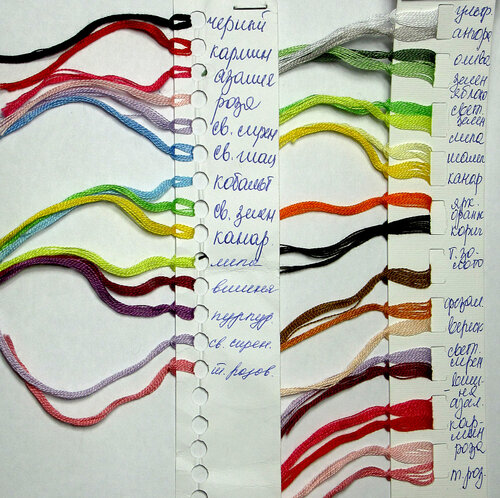 черный
кармин
азалие
роза
св. сирен
св. гиац
кобальт
св. зелен
канар.
липа
вишня
пурпур
св сирен.
т. розов.
ультр
ангора
олива
зелен
яблоко
свет.
зелен
липа
канар
ярк.
оранж
корич
т. зо-
лото
вереск
свет-
сирен
виш-
ня
азал.
кар-
мин
роза
т. роз.